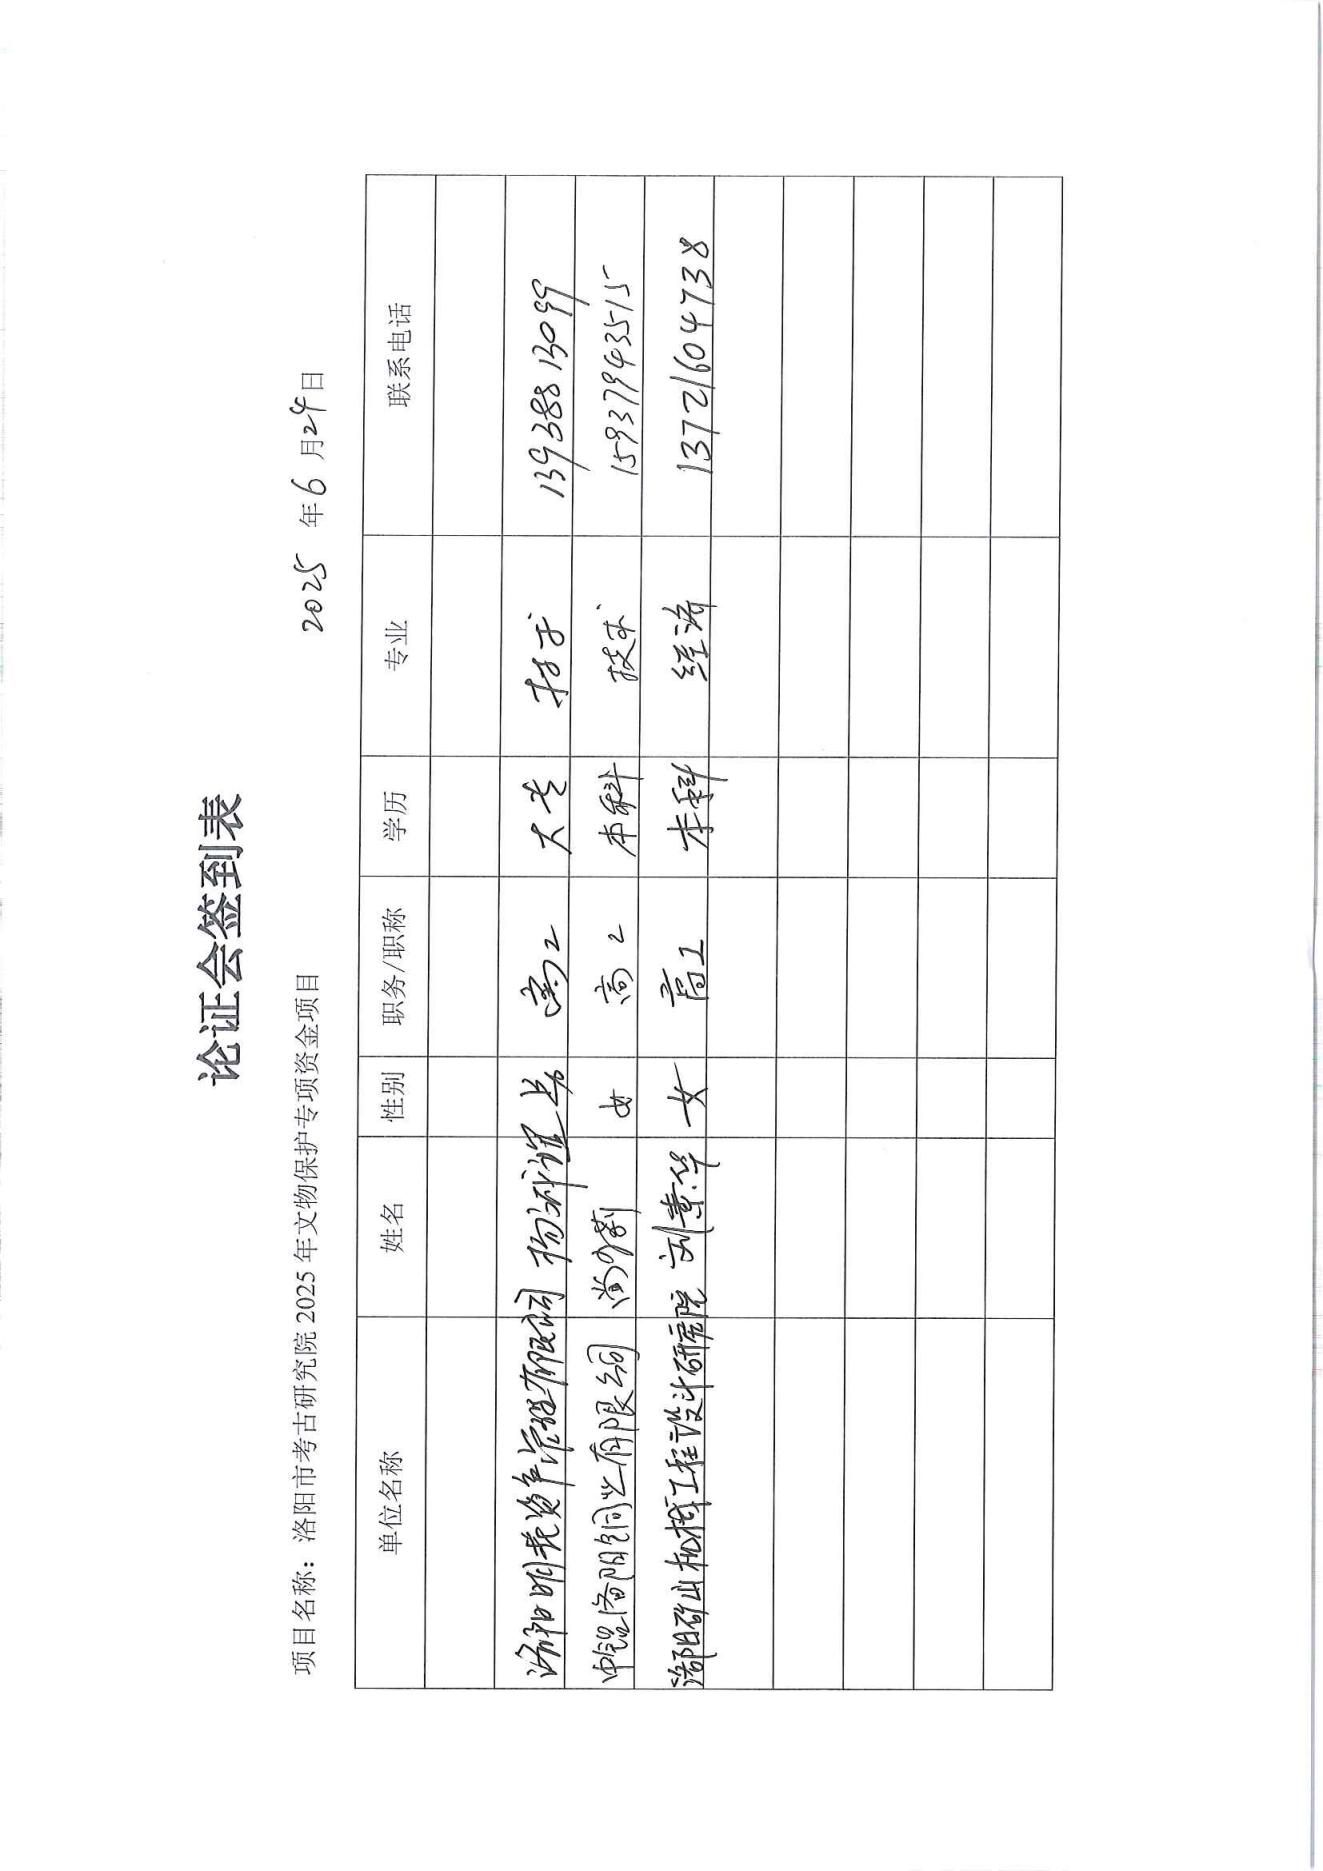 论证会签到表
项目名称：洛阳市考古研究院 2025 年文物保护专项资金项目
2025 年 6 月 24 日
单位名称 姓名 性别 职务/职称 学历 专业 联系电话
洛阳明耒资产管理有限公司 男 高工 大专 技术 13938813099
中铝洛阳铜业有限公司 女 高工 本科 技术 15937943515
洛阳矿山机械工程设计研究院 刘素华 女 高工 本科 经济 13721604738